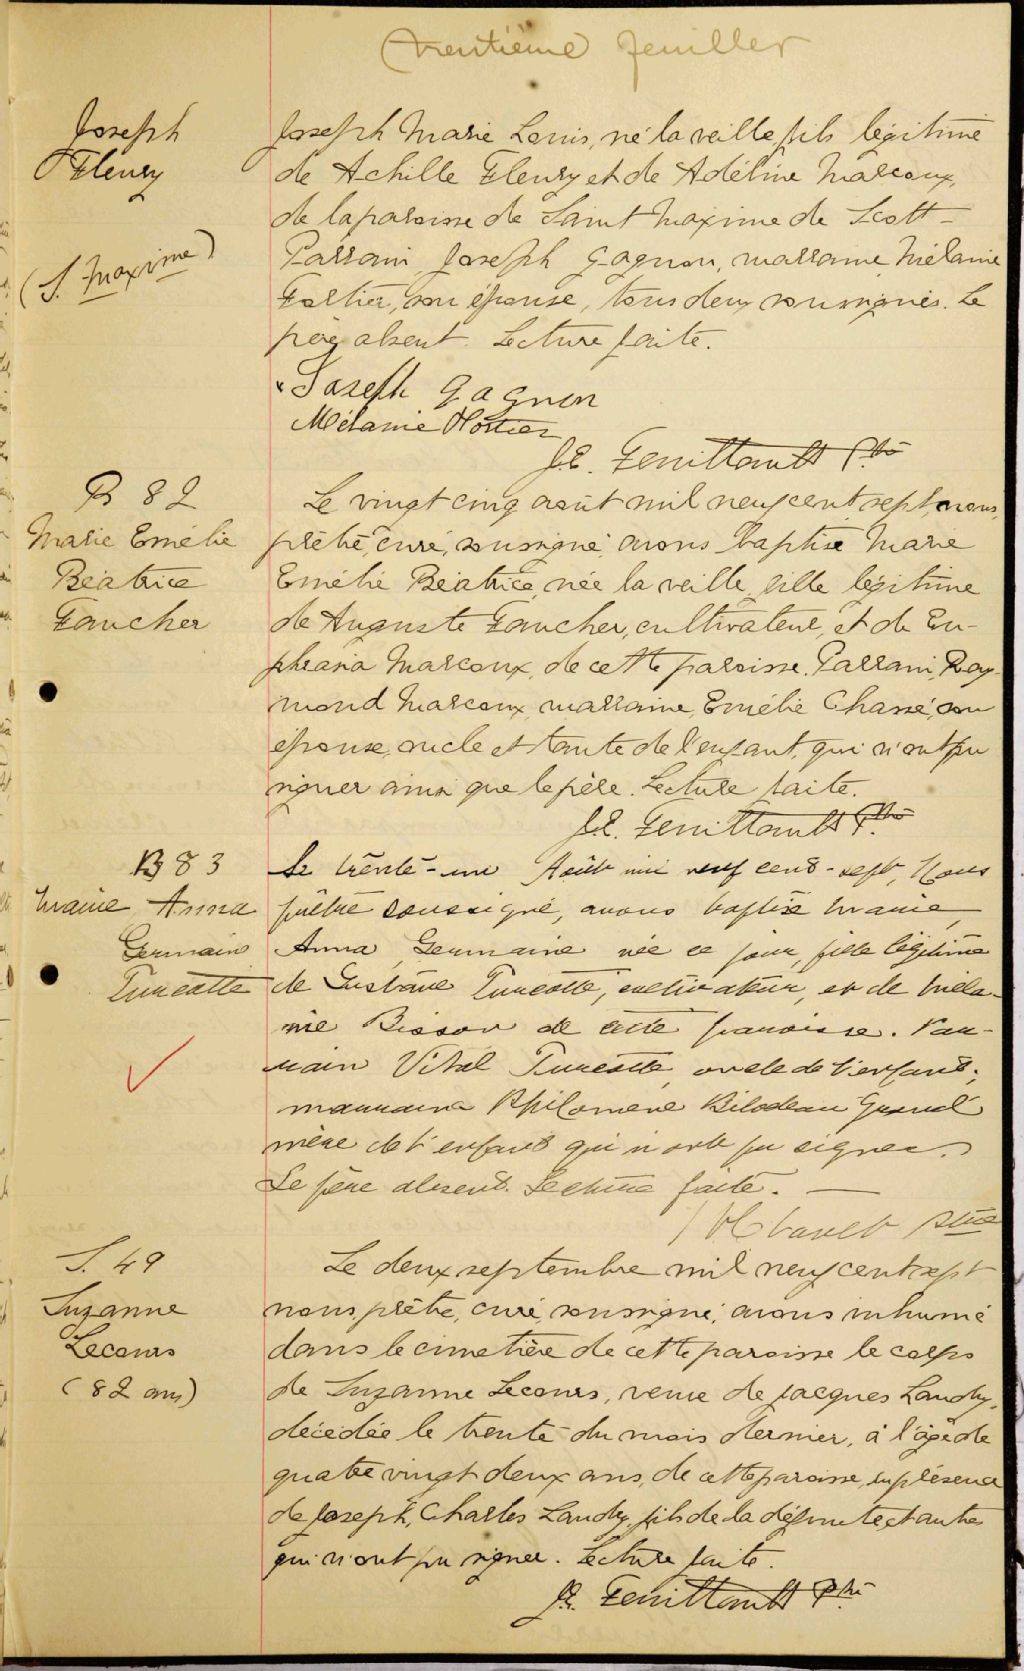 trentième feuillet
Joseph
Fleury
(S. Maxime)
Joseph Marie Louis, né la veille, fils légitime
de Achille Fleury et de Adéline Marcoux,
de la paroisse de Saint Maxime de Scott-
Parrain, Joseph Gagnon, marraine, Mélanie
Fortier, son épouse, tous deux soussignés. Le
père absent. Lecture faite.
Joseph Gagnon
Mélanie Fortier
J.E. Feuiltault Ptre
B 82
Marie Emélie
Béatrice
Faucher
Le vingt cinq août mil neuf cent sept, nous,
prêtre, curé, soussigné, avons baptisé Marie
Emélie Béatrice, née la veille, fille légitime
de Auguste Faucher, cultivateur, et de Eu-
phrasia Marcoux, de cette paroisse. Parrain, Ray-
mond Marcoux, marraine, Emélie Chassé, son
épouse, oncle et tante de l'enfant, qui n'ont pu
signer ainsi que le père. Lecture faite.
J.E. Feuiltault Ptre
B 83
Marie Anna
Germain
Turcotte
Le trente-un Août mil neuf cent-sept, Nous
prêtre soussigné, avons baptisé Marie,
Anna, Germaine née ce jour, fille légitime
de Gustave Turcotte, cultivateur, et de Méla-
nie Bisson de cette paroisse. Par-
rain Vital Turcotte, oncle de l'enfant;
marraine Philomene Bilodeau Grand'
mère de l'enfant qui n'ont pu signer.
Le père absent. Lecture faite.
Ptre
S. 49
Suzanne
Lecours
(82 ans)
Le deux septembre mil neuf cent sept
nous, prêtre, curé, soussigné, avons inhumé
dans le cimetière de cette paroisse le corps
de Suzanne Lecours, veuve de Jacques Landry,
décédée le trente du mois dernier, à l'âge de
quatre vingt deux ans, de cette paroisse, en présence
de Joseph, Charles Landry, fils de la défunte et autres
qui n'ont pu signer. Lecture faite.
J.E. Feuiltault Ptre